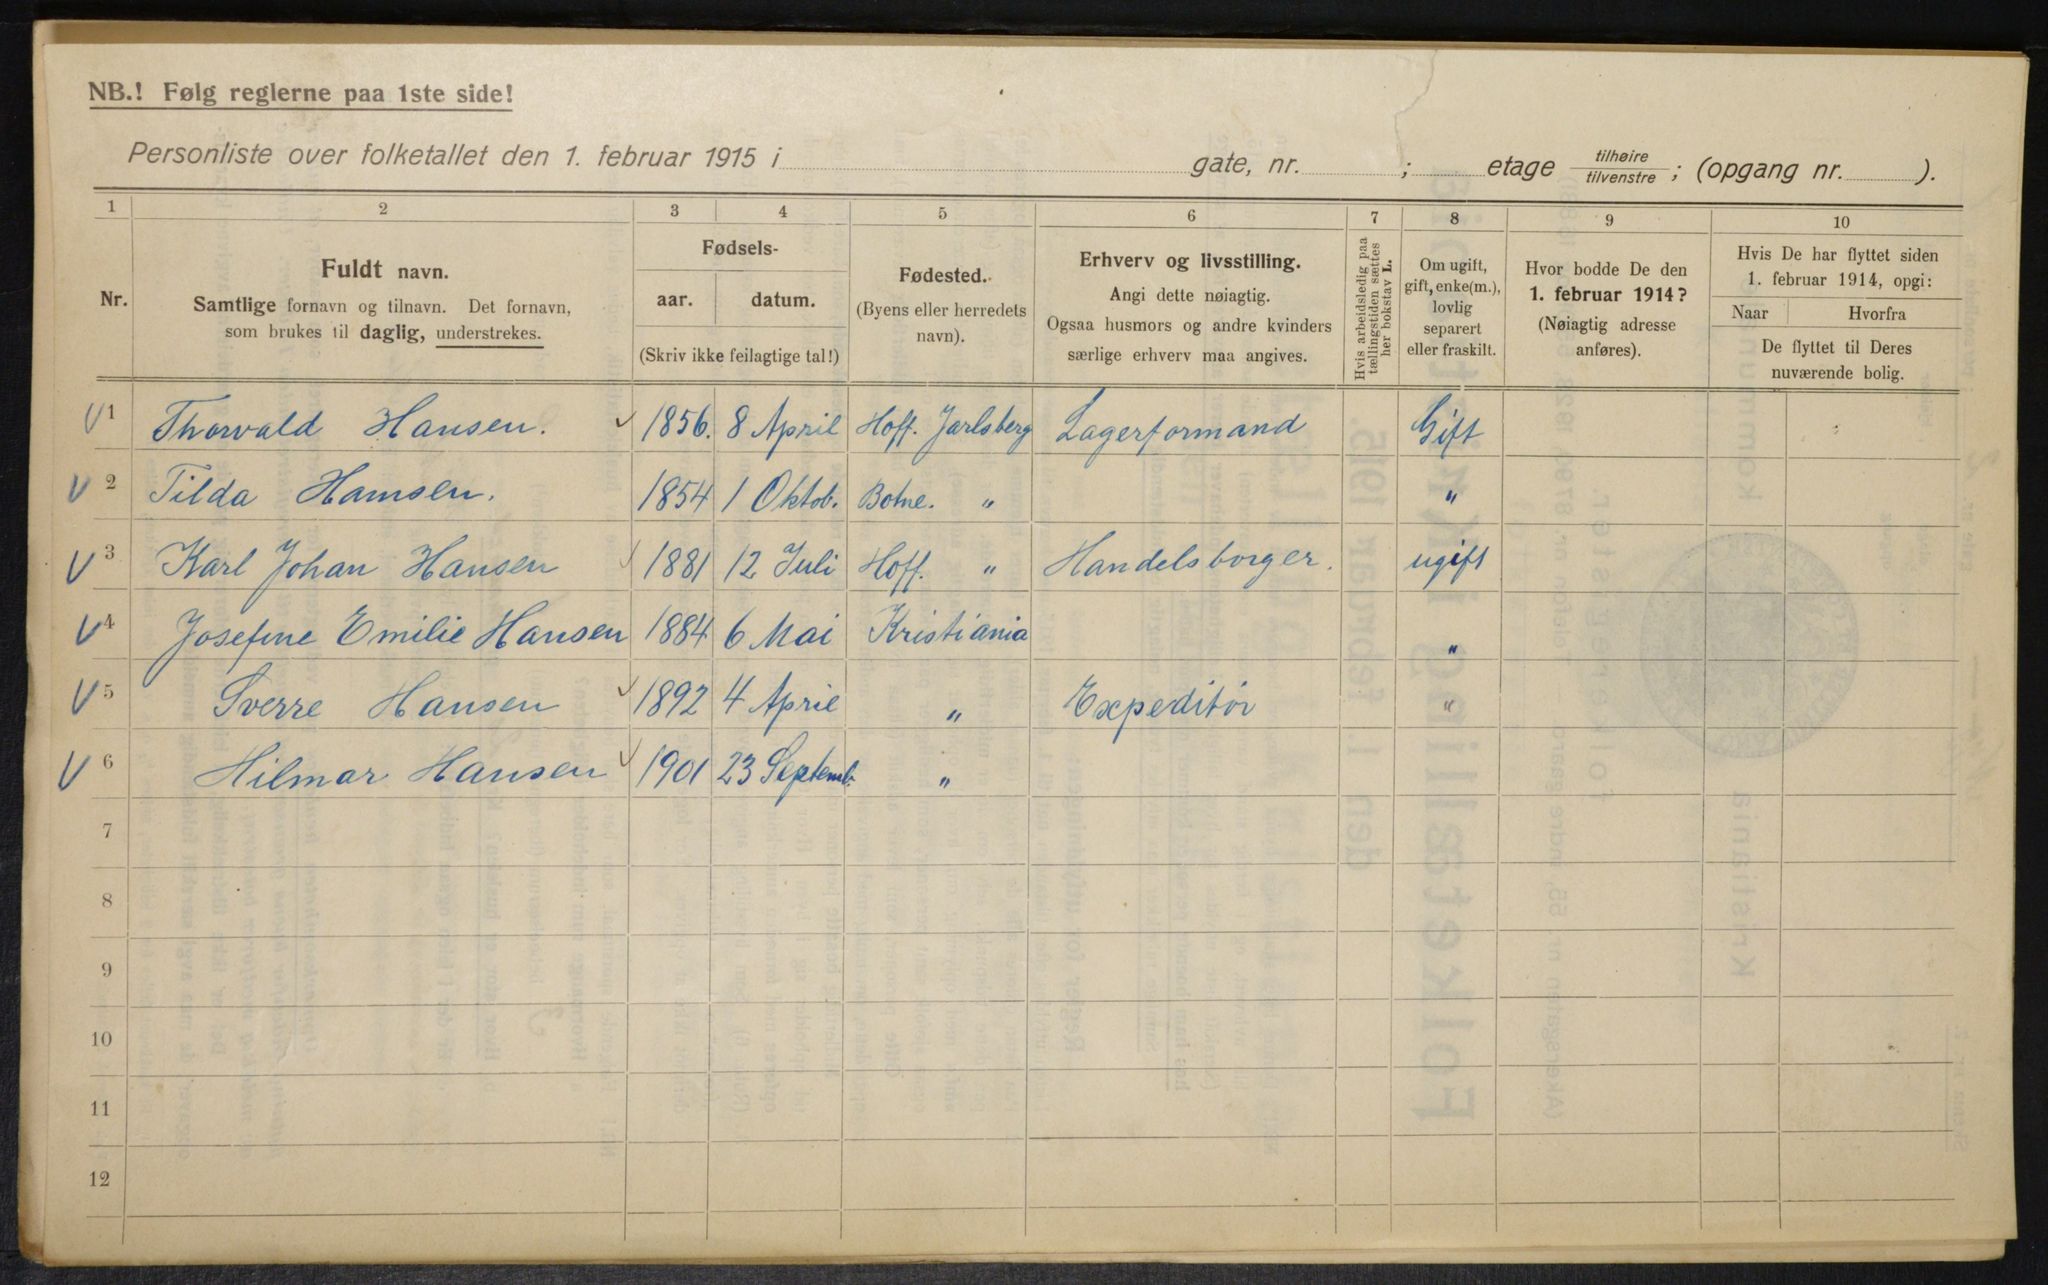 NB.! Følg reglerne paa 1ste side!
Personliste over folketallet den 1. februar 1915 i gate, nr. ; etage tilhøire tilvenstre ; (opgang nr. ).
1 2 3 4 5 6 7 8 9 10
Nr.
Fuldt navn.
Samtlige fornavn og tilnavn. Det fornavn,
som brukes til daglig, understrekes.
Fødsels-
aar. datum.
(Skriv ikke feilagtige tal!)
Fødested.
(Byens eller herredets
navn).
Erhverv og livsstilling.
Angi dette nøiagtig.
Ogsaa husmors og andre kvinders
særlige erhverv maa angives.
Hvis arbeidsledig paa
tællingstiden sættes
her bokstav L.
Om ugift,
gift, enke(m.),
lovlig
separert
eller fraskilt.
Hvor bodde De den
1. februar 1914?
(Nøiagtig adresse
anføres).
Hvis De har flyttet siden
1. februar 1914, opgi:
Naar Hvorfra
De flyttet til Deres
nuværende bolig.
1 Thorvald Hansen. 1856. 8 April Hoff. Jarlsberg Lagerformand Gift
2 Tilda Hansen. 1854 1 Oktob. Botne. " "
3 Karl Johan Hansen 1881 12 Juli Hoff. " Handelsborger. ugift
4 Josefine Emilie Hansen 1884 6 Mai Kristiania "
5 Sverre Hansen 1892 4 April " Expeditör "
6 Hilmar Hansen 1901 23 Septemb. "
7
8
9
10
11
12